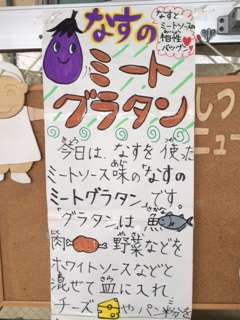 なすの
なすと
ミートソースの
相性
バッグン
ミート
グラタン
今日は、なすを使った
ミートソース味のなすの
ミートグラタンです。
グラタンは、魚
肉 野菜などを
ホワイトソースなどと
混ぜて皿に入れ
チーズ やパン粉を
しつ
ニュー